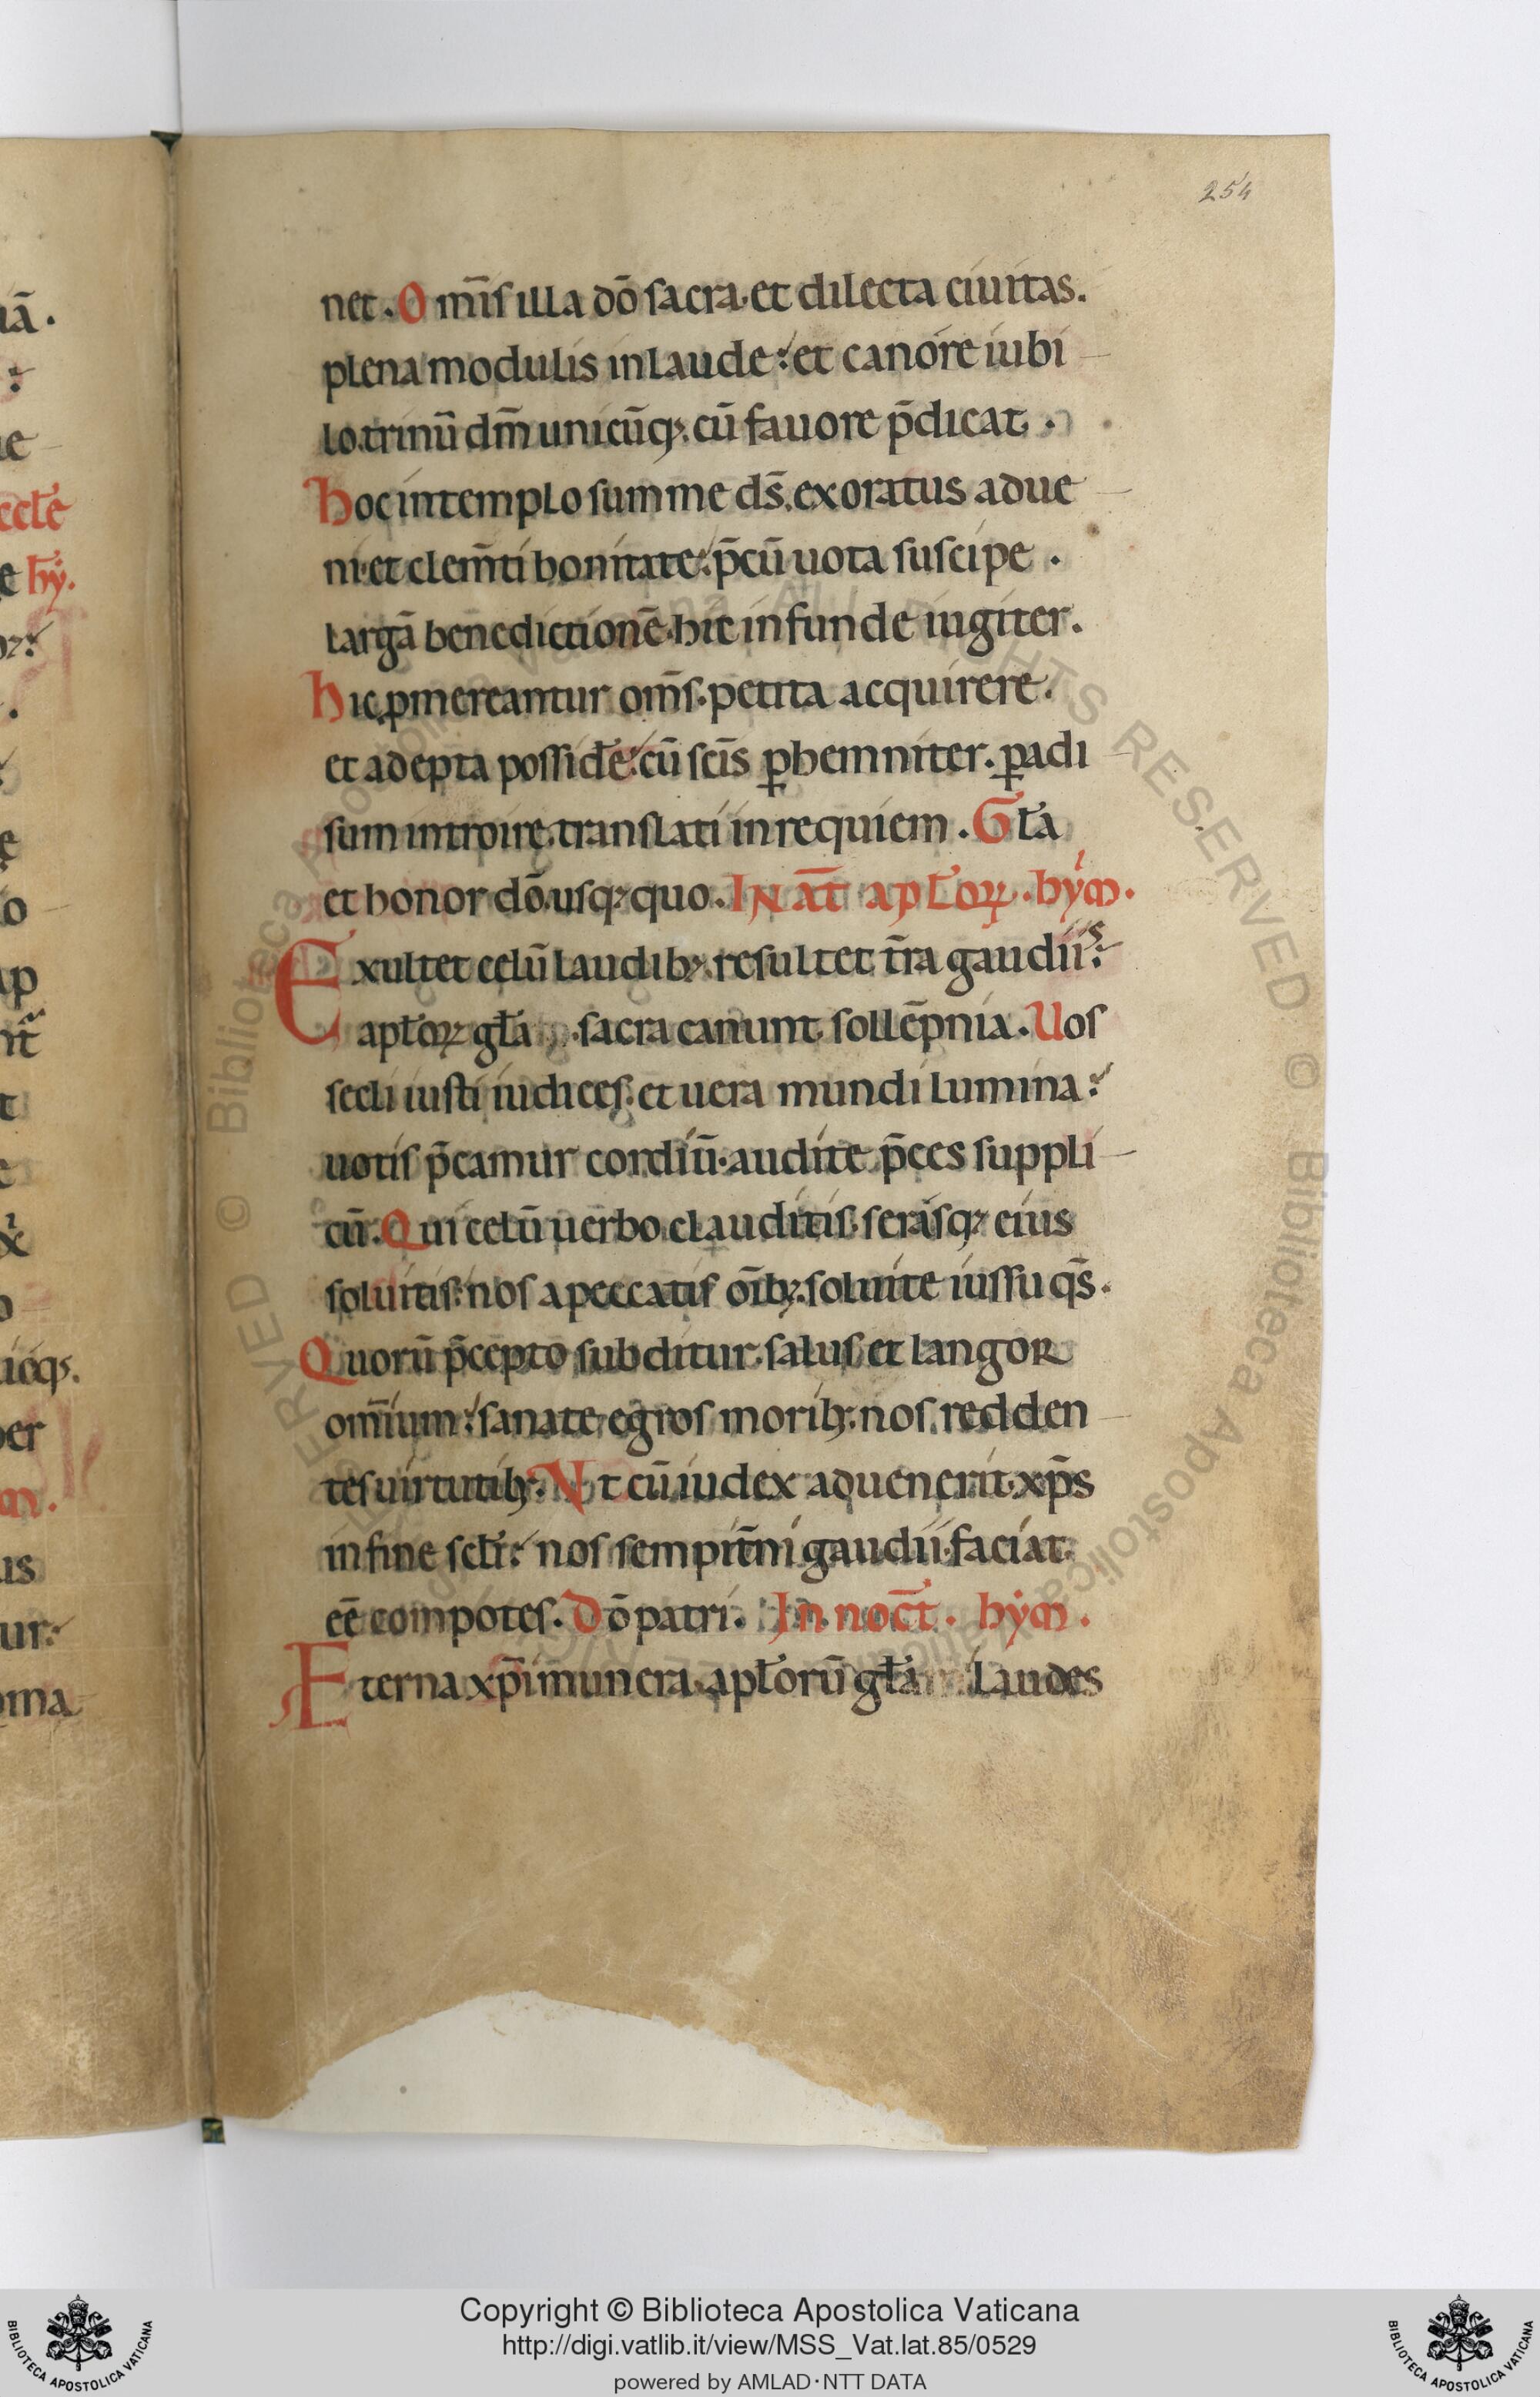 254
net. O mīſ illa dō ſacra. et dilecta ciuitas.
plena modulis in laude: et canore iubi
lo. trinū dm̄ unicūq;. cū fauore p̄dicat.
hoc in templo summe ds̄. exoratus adue
ni. et clem̄ti bonitate: p̄cū uota suscipe.
largā benedictionē. hic infunde iugiter.
hic pmereantur om̄s. petita acquirere.
et adepta possidēe: cū scīs phemniter. padi
sum introire. translati in requiem. Gła
et honor dō. usq; quo. IN āt apłoꝝ. hym̄.
Exultet celū laudib;. resultet t̄ra gaudiis:
apłoꝝ gła . sacra canunt sollēpnia. Uos
secli iusti iudices. et uera mundi lumina:
uotis p̄camur cordiū. audite p̄ces suppli
cū. Qui celū uerbo clauditis. serasq; eius
soluitis: nos a peccatis oīb;. soluite iussu qs̄.
Quorū p̄cepto subditur. salus et langor
om̄ium: sanate egros morib;. nos redden
tes uirtutib;. Vt cū iudex aduenerit. xp̄s
in fine scłi: nos sempit̄ni gaudii. faciat
eē compotes. Dō patri. In noct̄. hym̄.
Eterna xp̄i munera. apłorū gła laudes
iā.
ecclē
e hy.
ę
us
ur:
per
Copyright © Biblioteca Apostolica Vaticana
http://digi.vatlib.it/view/MSS_Vat.lat.85/0529
powered by AMLAD·NTT DATA
BIBLIOTECA APOSTOLICA VATICANA
BIBLIOTECA APOSTOLICA VATICANA